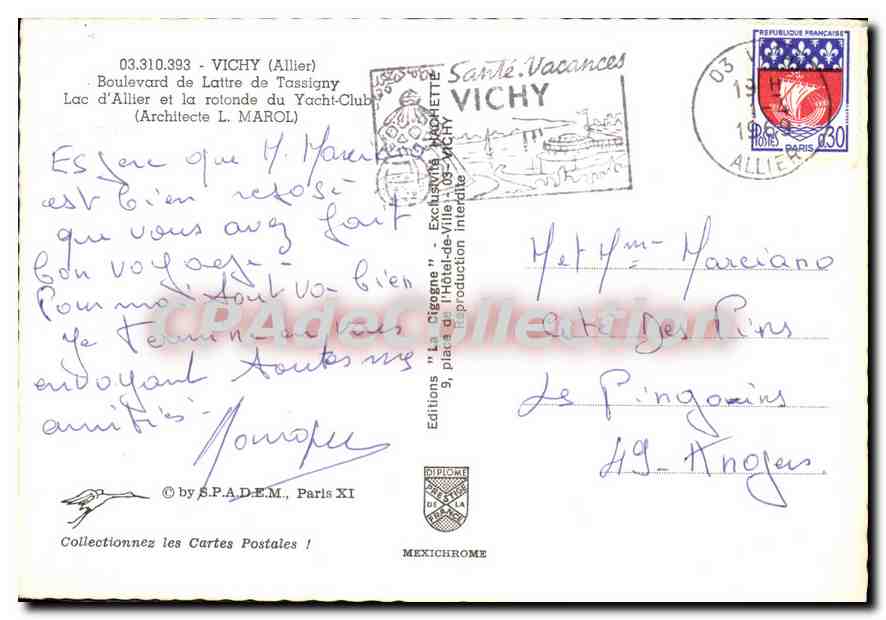 03.310.393 - VICHY (Allier)
Boulevard de Lattre de Tassigny
Lac d'Allier et la rotonde du Yacht-Club
(Architecte L. MAROL)
Espère que M. Marciano
est bien reposé
que vous avez fait
bon voyage -
Pour moi tout va bien
Je termine en vous
envoyant toutes mes
amitiés -
© by S.P.A.D.E.M., Paris XI
Collectionnez les Cartes Postales !
Editions "La Cigogne" - Exclusivité HACHETTE
9, place de l'Hôtel-de-Ville - 03-VICHY
Reproduction interdite
DIPLOME
PRESTIGE
DE LA
FRANCE
MEXICHROME
Santé-Vacances
VICHY
03 VICHY
19H
1969
ALLIER
REPUBLIQUE FRANÇAISE
POSTES
PARIS
0,30
M et Mme Marciano
Cité Des Pins
Les Pingouins
49 - Angers.
CPAdeCollection.com